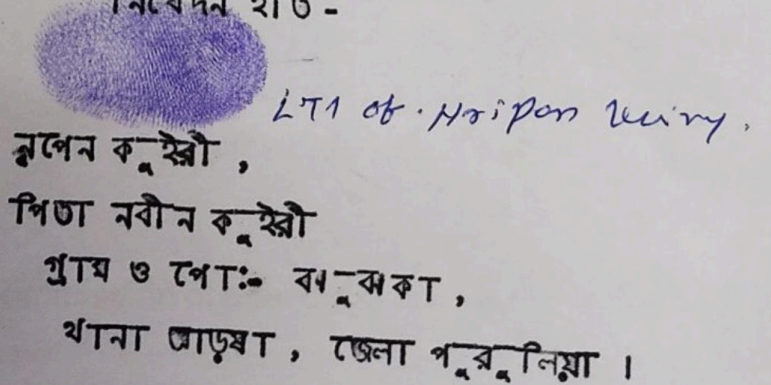 নিবেদন ইতি -
LTI of. Nripen Kuiry.
নৃপেন কুইরী,
পিতা নবীন কুইরী
গ্রাম ও পোঃ- ঝুঝকা,
থানা আড়ষা, জেলা পুরুলিয়া ।